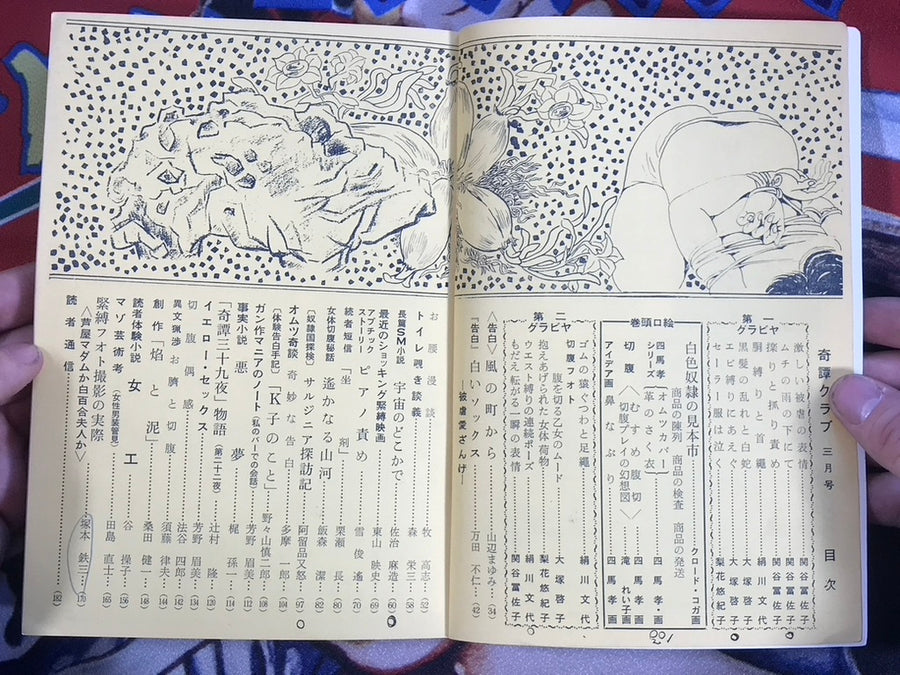 奇譚クラブ 三月号 目次
第一グラビヤ
激しい被虐の表情 関谷富佐子
ムチの雨の下にて 関谷富佐子
擽りと抓り責め 絹川文代
胴縛りと首縄 大塚啓子
黒髪の乱れと白蛇 大塚啓子
エビ縛りにあえぐ
セーラー服は泣く 梨花悠紀子
巻頭口絵
白色奴隷の見本市 クロード・コガ画
商品の陳列 商品の検査 商品の発送
四馬孝シリーズ
【オムツカバー】 四馬孝・画
【革のさく衣】
切腹
〈むすめ腹切〉 四馬孝画
〈切腹プレイの幻想図〉 滝れい子画
アイデア画 鼻なぶり 四馬孝画
第二グラビヤ
ゴムの猿ぐつわと足縄 絹川文代
切腹フォト 腹を切る乙女のムード 大塚啓子
抱えあげられた女体荷物 梨花悠紀子
ウエスト縛りの連続ポーズ 絹川文代
もだえ転がる一瞬の表情 関谷富佐子
〈告白〉風の町から 山辺まゆみ…(34)
〔告白〕白いソックス―被虐愛ざんげ― 万田不仁…(42)
お腰漫談 牧高志…(52)
トイレ覗き談義 森栄三…(58)
長篇SM小説 宇宙のどこかで 佐治麻造…(60)
最近のショッキング緊縛映画 東山映史…(69)
アブチックストーリー ピアノ責め 雪俊遙…(70)
続者短信 「坐剤」 栗瀬長…(80)
女体切腹秘話 遙かなる山河 飯森潔…(82)
〔奴隷国探検〕サルジニア探訪記 阿留品又怒…(97)
オムツ奇談 奇妙な告白 多摩一郎…(104)
〔体験告白手記〕「K子のこと」 野々山慎二郎…(108)
ガン作マニアのノート(私のバーでの会話) 芳野眉美…(112)
事実小説 悪夢 梶孝一…(114)
「奇譚三十九夜」物語(第二十二夜) 辻村隆…(120)
イエロー・セックス 芳野眉美…(134)
切腹偶感 法谷四郎…(142)
異文猟渉 お臍と切腹 須藤律夫…(144)
創作 「焰と泥」 桑田健一…(148)
読者体験小説 女工(女性男装管見) 谷操子…(156)
マゾ芸術考 田島直士…(165)
緊縛フォト撮影の実際 塚本鉄三…(170)
〈芦屋マダムか白百合夫人か〉
読者通信…(182)